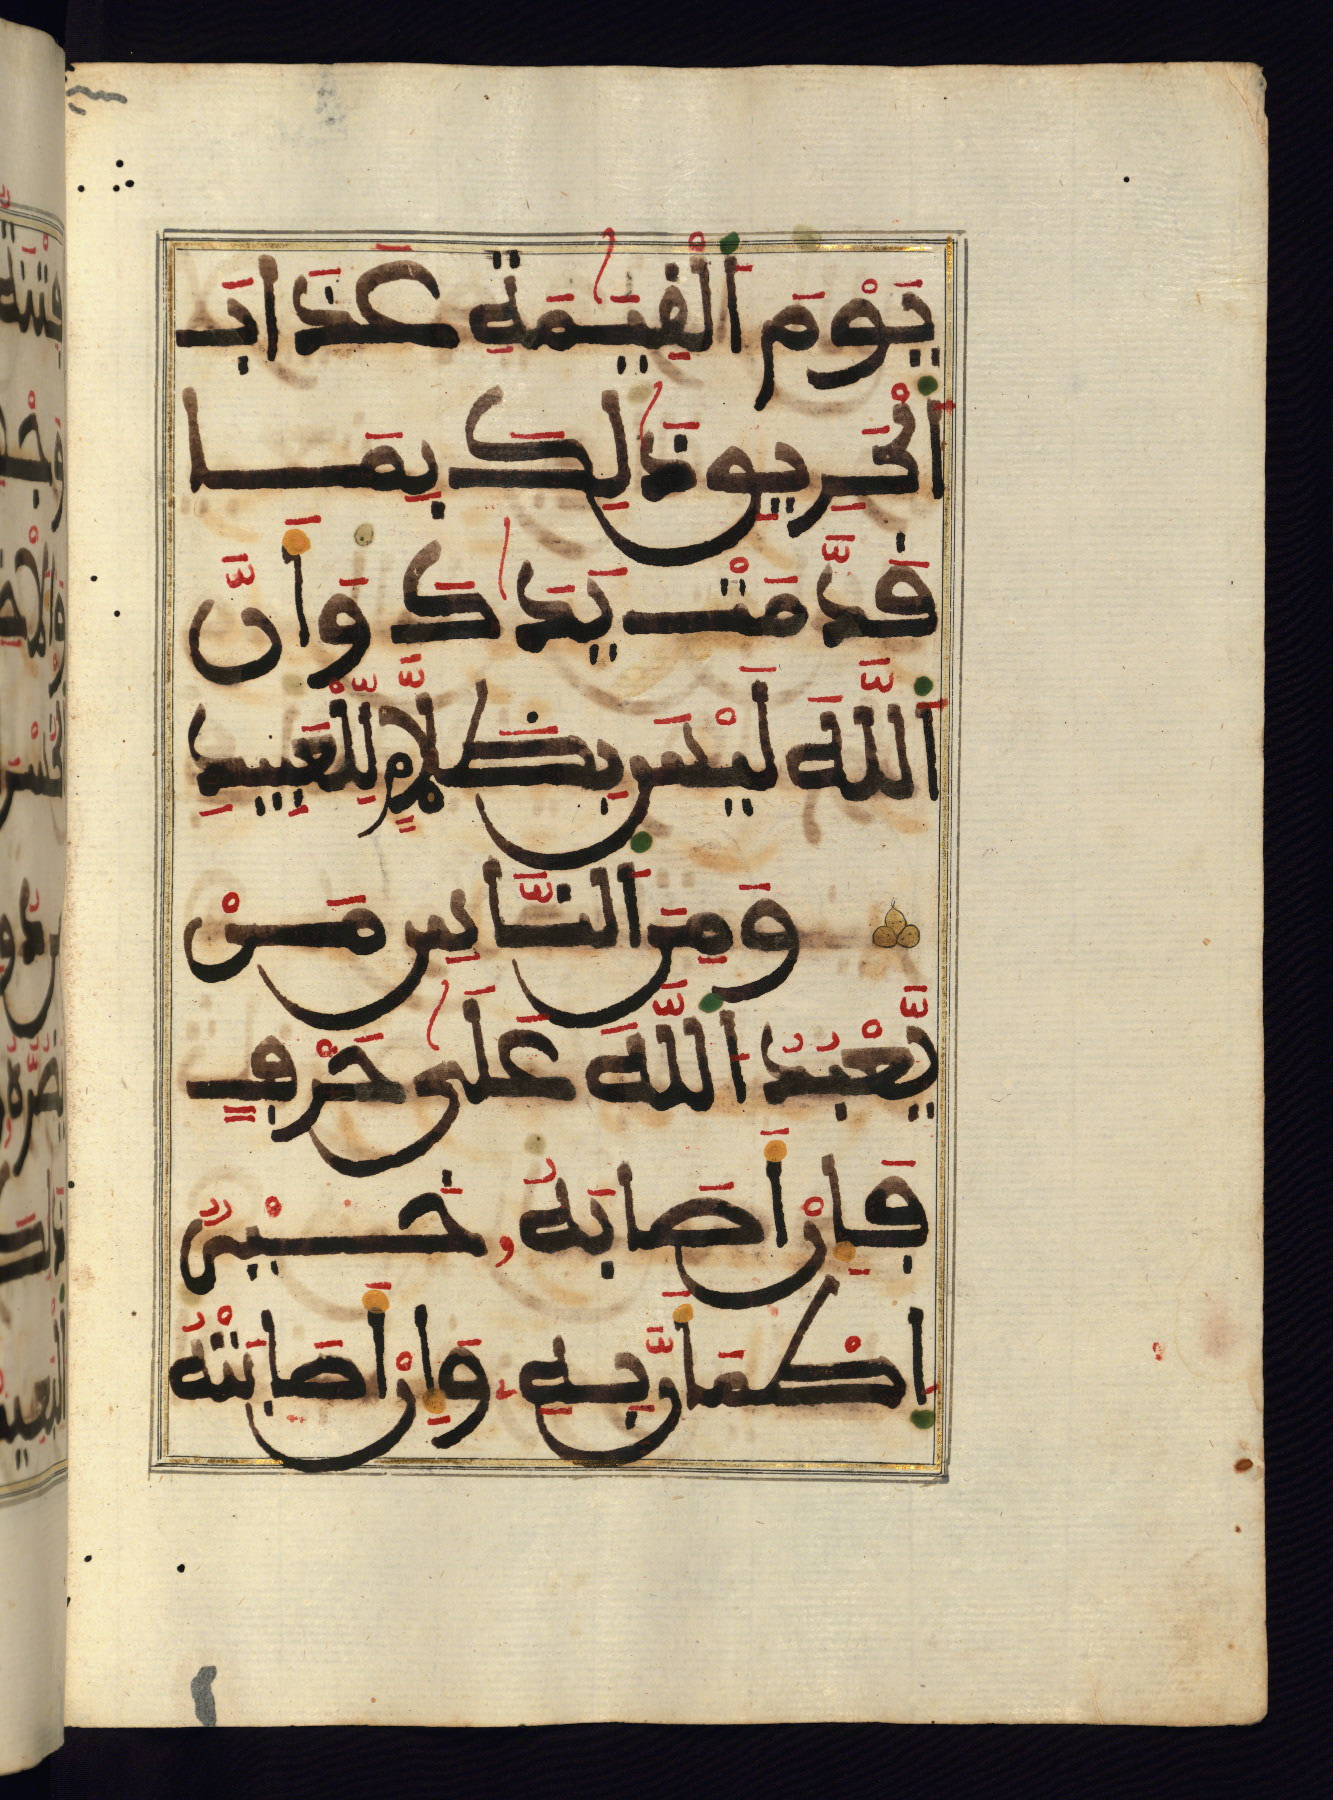 يَوْمَ اَ۬لْقِيَٰمَةِ عَذَابَ
اَ۬لْحَرِيقِ ذَٰلِكَ بِمَا
قَدَّمَتْ يَدَٰكَ وَأَنَّ
اَ۬للَّهَ لَيْسَ بِظَلَّٰمٍ لِّلْعَبِيدِ
وَمِنَ اَ۬لنَّاسِ مَنْ
يَّعْبُدُ اُ۬للَّهَ عَلَىٰ حَرْفٍ
فَإِنْ أَصَابَهُۥ خَيْرٌ
اِ۪طْمَأَنَّ بِهِۦ وَإِنْ أَصَابَتْهُ